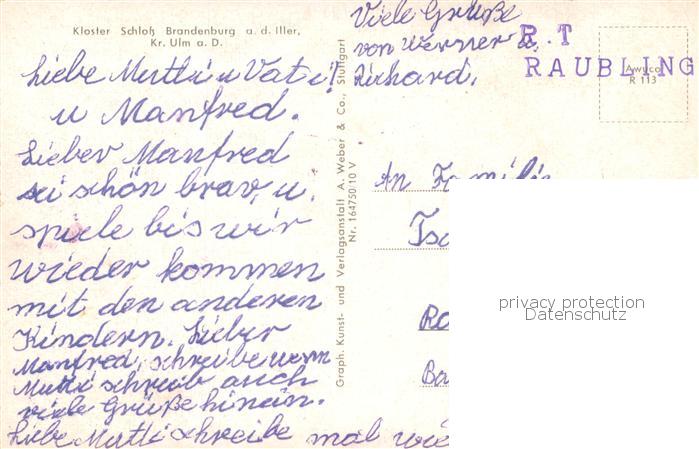 Kloster Schloß Brandenburg a. d. Iller,
Kr. Ulm a. D.
Liebe Mutti u Vati!
u Manfred.
Lieber Manfred
sei schön brav, u.
spiele bis wir
wieder kommen
mit den anderen
Kindern. Lieber
Manfred, schreibe wenn
Mutti schreib auch
viele Grüße hinein.
Liebe Mutti schreibe mal wie
Viele Grüße
von Werner u.
Richard.
Graph. Kunst- und Verlagsanstalt A. Weber & Co., Stuttgart
Nr. 164750/10 V
R. T
RAUBLING
R 113
An Familie
Tsc
Ro
Ba
privacy protection
Datenschutz